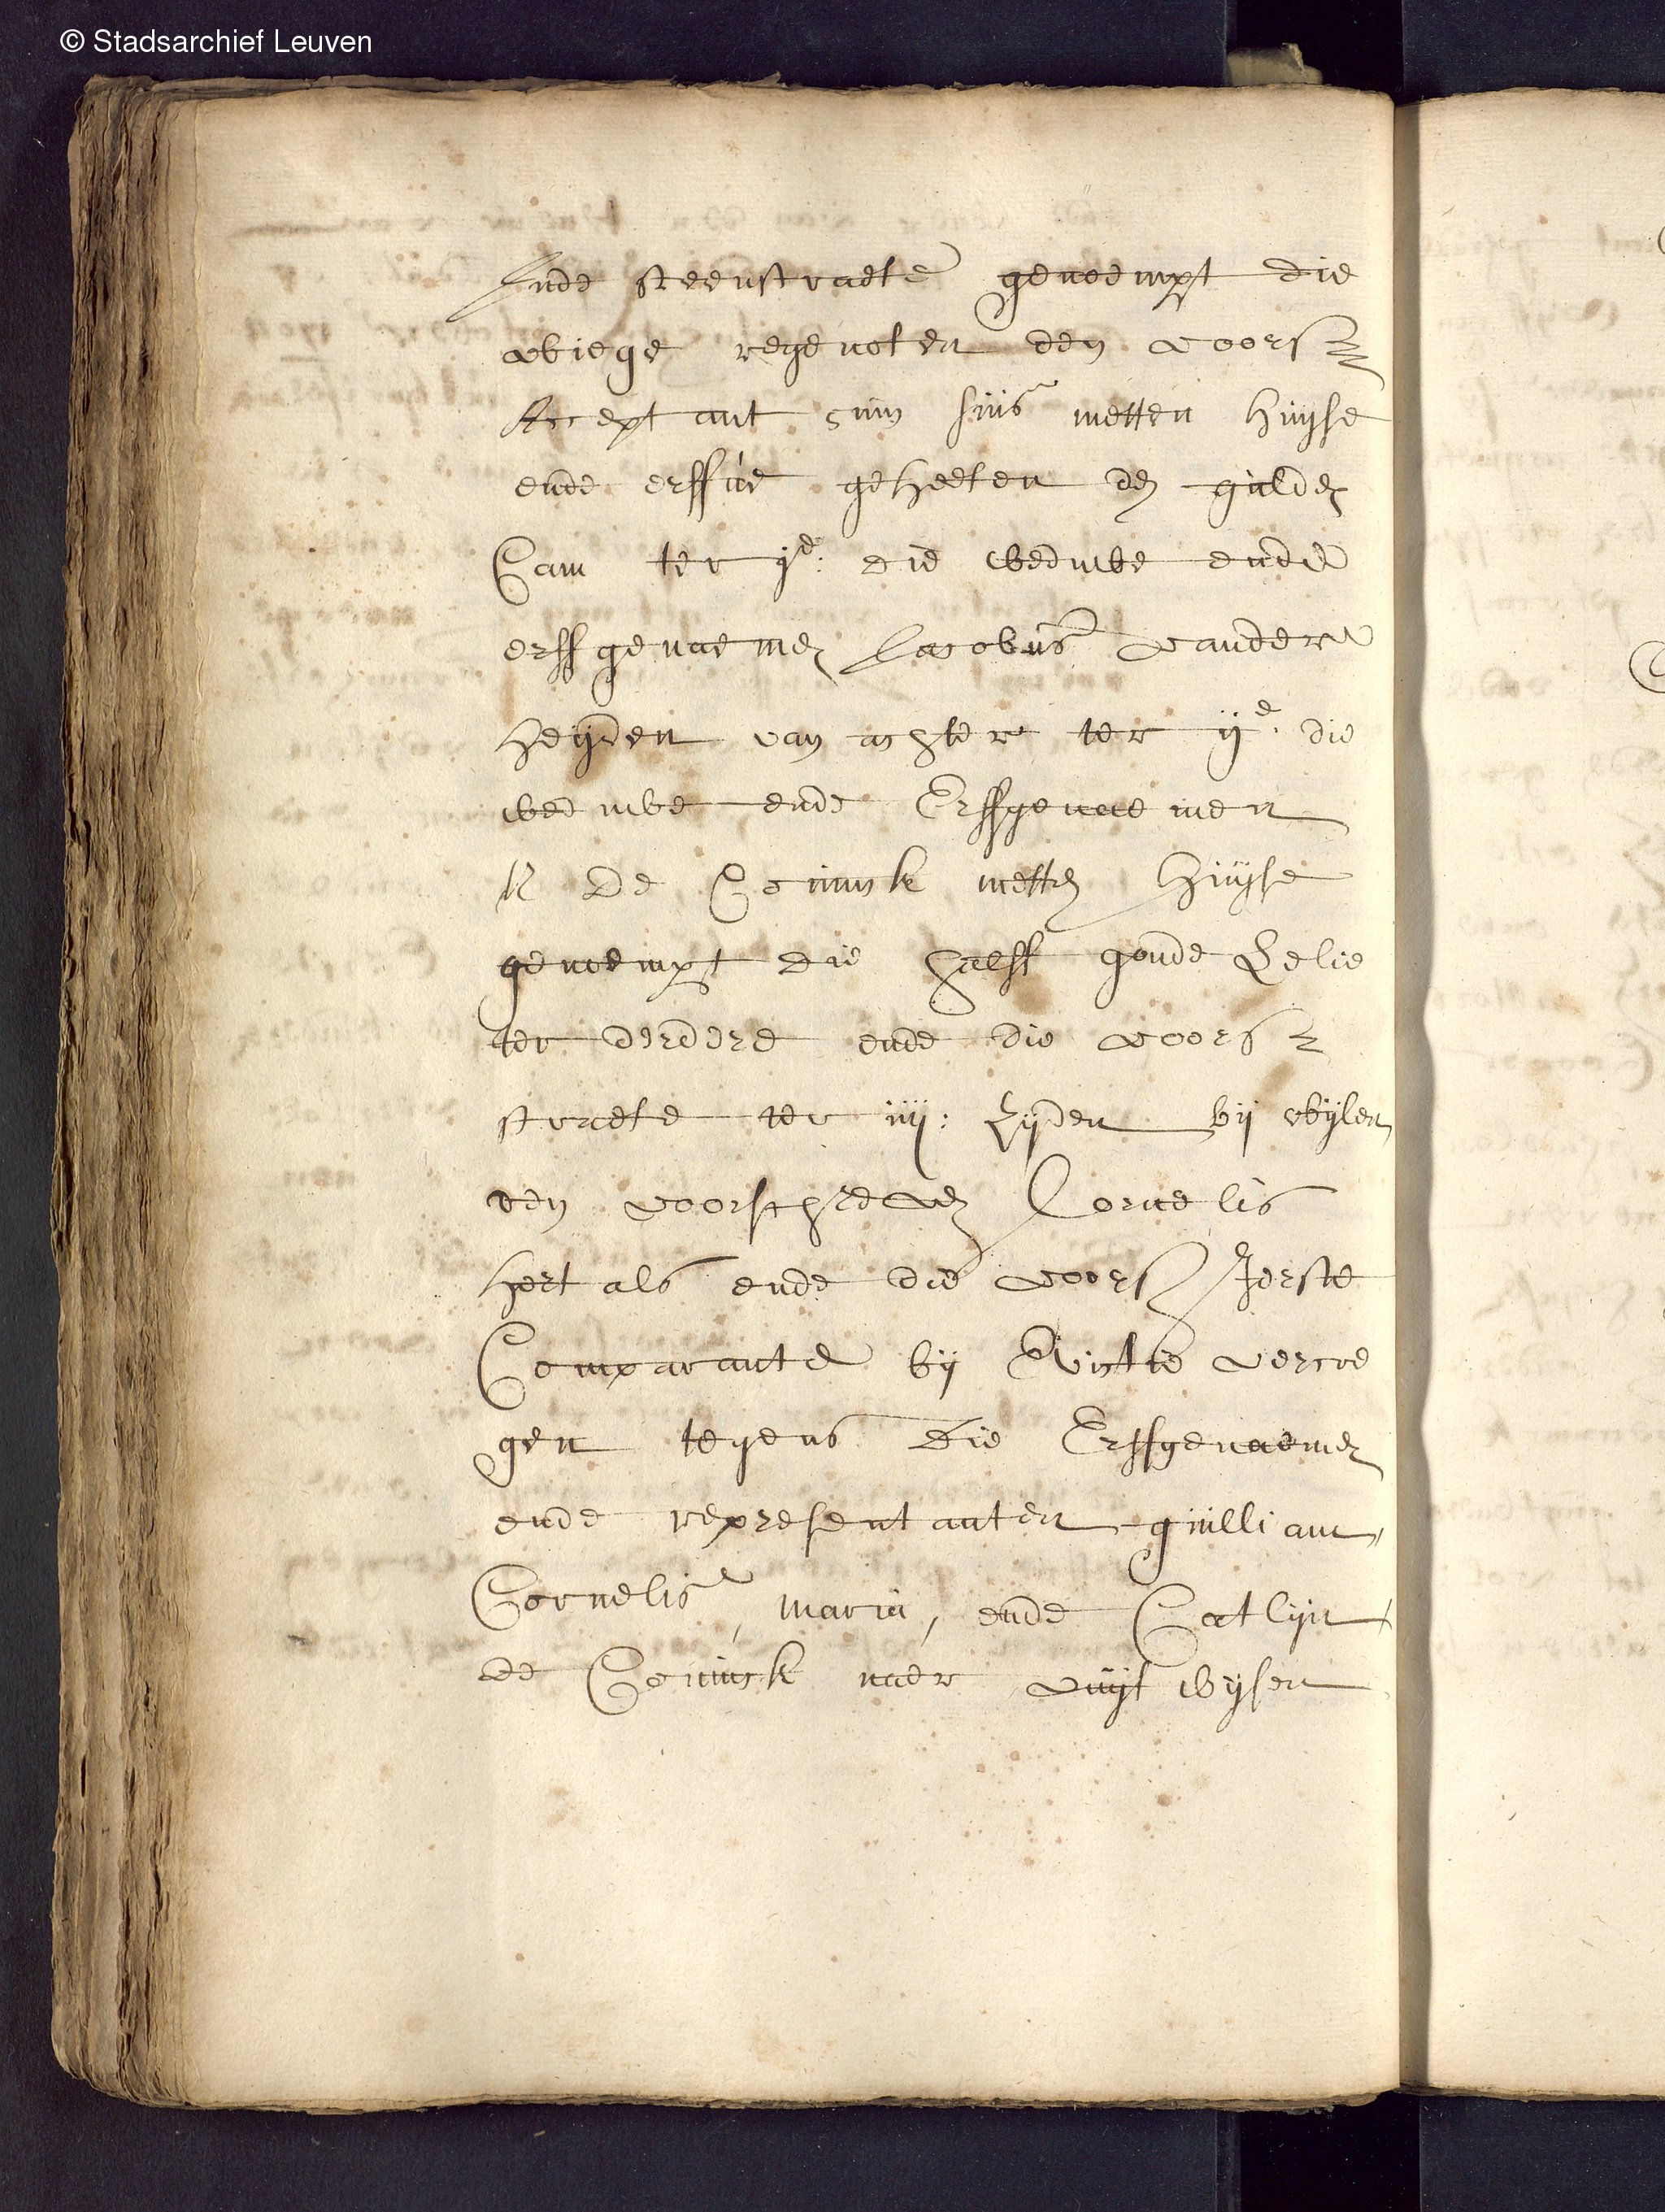 © Stadsarchief Leuven
Inde steenstraete genoempt die
wiege regenoten den voors
Acceptant cum suis metten huyse
ende erffve geheeten den gulden
Cam ter ie: die weduwe ende
erffgenaemen Jacobus vander
heyden van achter ter ije. die
weduwe ende Erffgenaemen
N de Coninck metten huyse
genoempt die halff goude Lelie
ter derdere ende die voors
straete ter iiij: zyden by wylen
den voorschreven Cornelis
hertals ende die voors Ierste
Comparante by Evictie vercre
gen tegens die Erffgenaemen
ende representanten guilliam,
Cornelis, maria, ende Catlyn
de Coninck naer vuytwysen